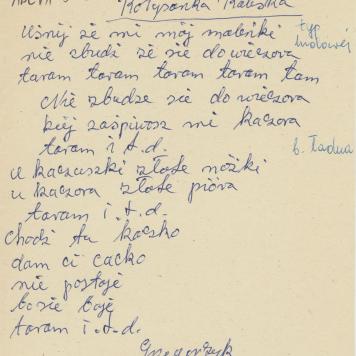 Kołysanka Kaliska
Uśnij że mi mój maleńki
typ
nie zbudź że sie do wieczora
ludowej
taram taram taram taram tam
Nie zbudze sie do wieczora
kiej zaśpiwosz mi kaczora
taram i t.d.
b. ładna
u kaczuszki złote nóżki
u kaczora złote pióra
taram i.t.d.
chodź tu kaczko
dam ci cacko
nie postoje
bo sie boje
taram i t.d.
Grzegorzyk